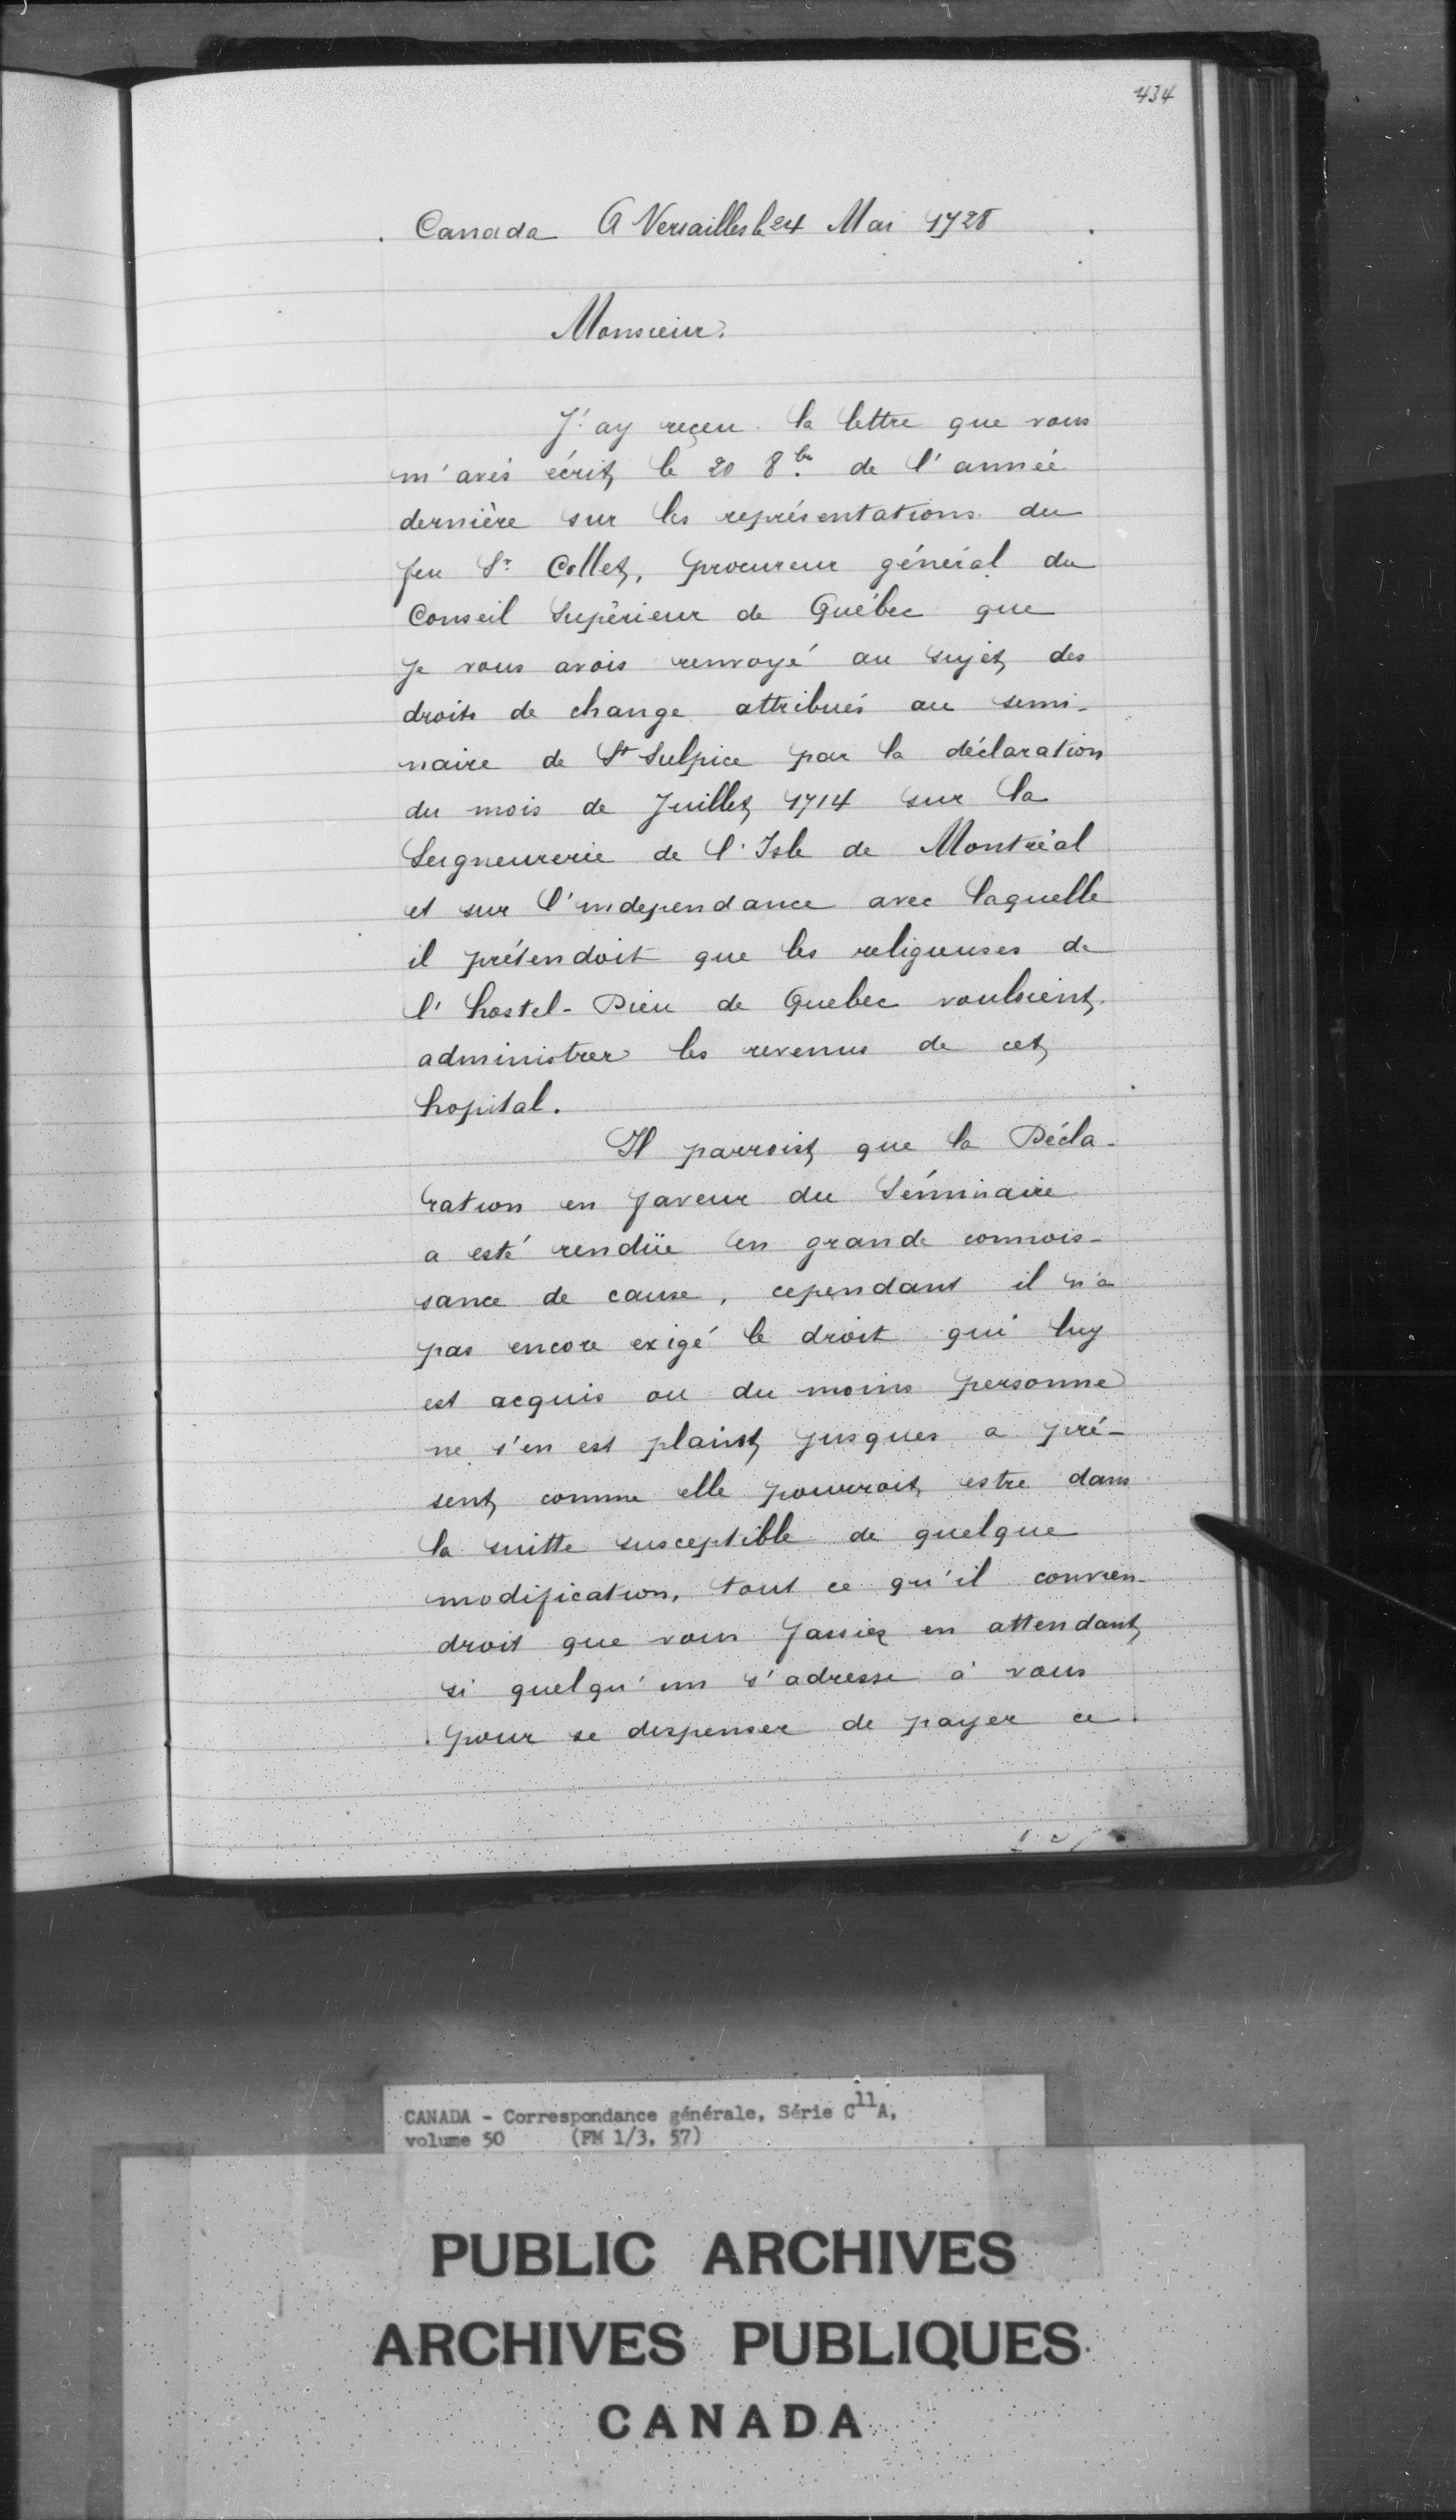 434
Canada A Versailles le 24 Mai 1728
Monsieur.
J'ay reçeu la lettre que vous
m'avés écrit le 20 8bre de l'année
dernière sur les représentations du
feu Sr Collet, procureur général du
Conseil Supérieur de Québec que
je vous avois renvoyé au sujet des
droits de change attribués au semi-
naire de St Sulpice par la déclaration
du mois de Juillet 1714 sur la
Seigneurerie de l'Isle de Montréal
et sur l'independance avec laquelle
il prétendoit que les religieuses de
l'hostel-Dieu de Quebec vouloient
administrer les revenus de cet
hopital.
Il parroist que la Décla-
ration en faveur du Séminaire
a esté rendüe en grande connois-
sance de cause, cependant il n'a
pas encore exigé le droit qui luy
est acquis ou du moins personne
ne s'en est plaint jusques a pré-
sent, comme elle pourroit estre dans
la suitte susceptible de quelque
modification, tout ce qu'il convien-
droit que vous fassiez en attendant
si quelqu'un s'adresse à vous
pour se dispenser de payer ce
CANADA - Correspondance générale, Série C11A,
volume 50 (FM 1/3, 57)
PUBLIC ARCHIVES
ARCHIVES PUBLIQUES
CANADA